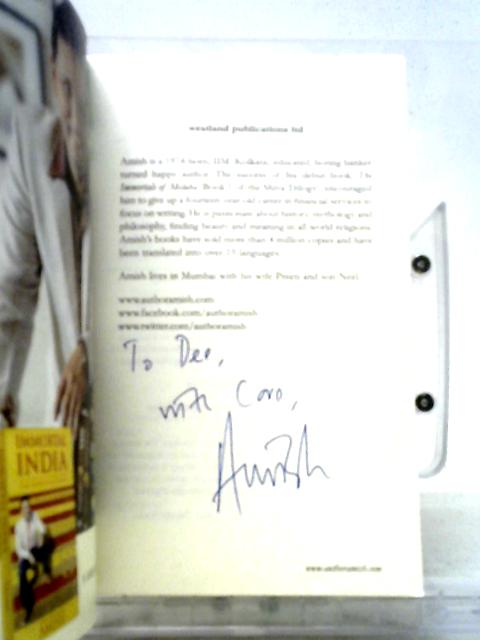 westland publications ltd
Amish is a 1974-born, IIM (Kolkata)-educated, boring banker
turned happy author. The success of his debut book, The
Immortals of Meluha (Book 1 of the Shiva Trilogy), encouraged
him to give up a fourteen-year-old career in financial services to
focus on writing. He is passionate about history, mythology and
philosophy, finding beauty and meaning in all world religions.
Amish's books have sold more than 4 million copies and have
been translated into over 19 languages.
Amish lives in Mumbai with his wife Preeti and son Neel.
www.authoramish.com
www.facebook.com/authoramish
www.twitter.com/authoramish
To Dee,
with Caro,
Amish
www.authoramish.com
IMMORTAL
INDIA
AMISH